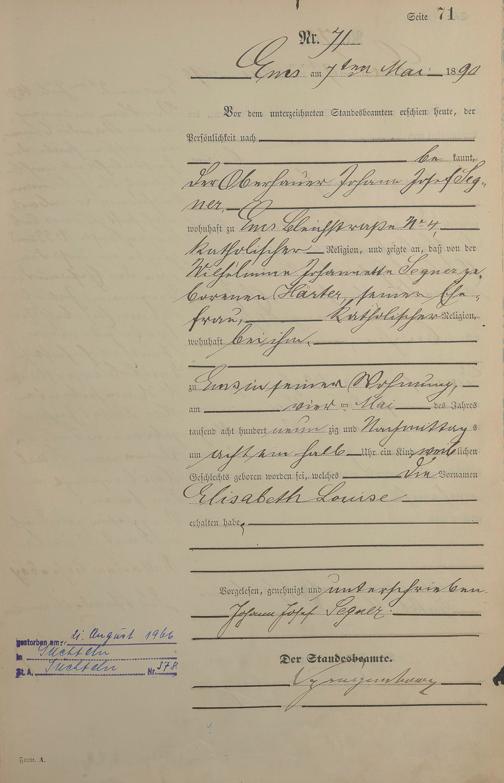 Seite 71
Nr. 71
Ems am 7ten Mai 1890
Vor dem unterzeichneten Standesbeamten erschien heute, der
Persönlichkeit nach
be kannt,
der Oberhauer Johann Josef Seg-
ner,
wohnhaft zu Ems Bleichstraße No 4,
katholischer Religion, und zeigte an, daß von der
Wilhelmine Johannette Segner ge-
borenen Härter, seiner Ehe-
frau, katholischer Religion,
wohnhaft bei ihm,
zu Ems in seiner Wohnung,
am vier ten Mai des Jahres
tausend acht hundert neun zig und Nachmittags
um acht ein halb Uhr ein Kind weiblichen
Geschlechts geboren worden sei, welches die Vornamen
Elisabeth Louise
erhalten habe,
Vorgelesen, genehmigt und unterschrieben
Johann Josef Segner
gestorben am: 21. August 1966
in Süchteln
St. A. Süchteln Nr. 378
Der Standesbeamte.
Form. A.